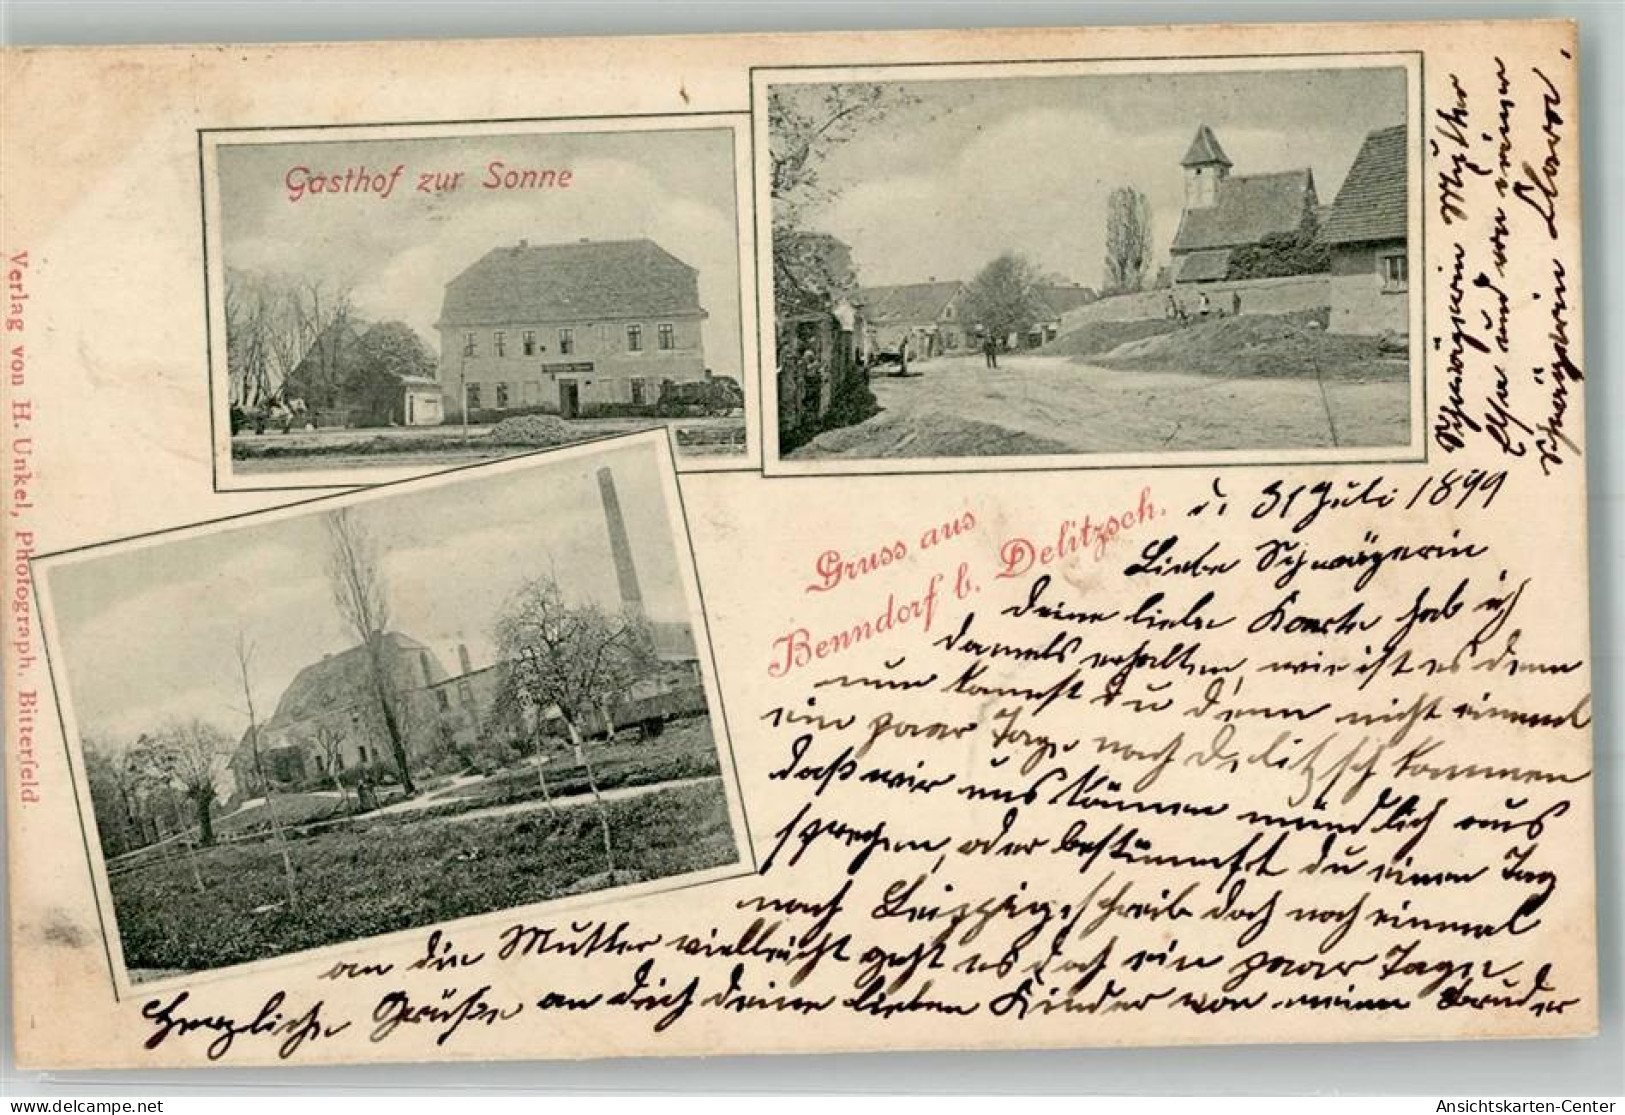 Gasthof zur Sonne
Verlag von H. Unkel, Photograph, Bitterfeld.
Gruss aus
Benndorf b. Delitzsch.
d. 31 Juli 1899
Liebe Schwägerin
Deine liebe Koarte hab ich
damals erhalten, wie ist es denn
nun kannst du denn nicht einmal
ein paar Tage nach Delitzsch kommen
daß wir uns können mündlich aus
sprechen, oder bestimmst du einen Tag
nach Leipzig schreib doch noch einmal
an die Mutter vielleicht geht es doch ein paar Tage
Herzliche Grüße an dich deine lieben Kinder von meinen Bruder
Schwägerin Mutter
und von einer
Schwägerin
Ansichtskarten-Center